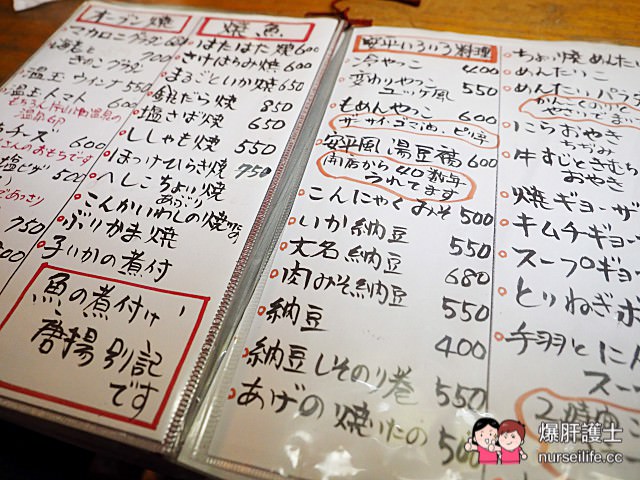 オーブン焼
マカロニグラタン 600
海老と
きのこグラタン 700
温玉ウインナ 550
温玉トマト 600
チーズ 600
塩ピザ 550
750
焼魚
はたはた焼 600
さけはらみ焼 600
まるごといか焼 650
銀だら焼 850
塩さば焼 650
ししゃも焼 550
ほっけひらき焼 750
へしこちょい焼
あぶり
こんかいわしの焼
ぶりかま焼
子いかの煮付
魚の煮付け
唐揚 別記
です
安平いろいろ料理
冷やっこ 400
変わりやっこ 550
ユッケ風
もめんやっこ 600
ザーサイ・ゴマ油・ピリ辛
安平風湯豆腐 600
開店から40数年
つれてます
こんにゃくみそ 500
いか納豆 550
大名納豆 680
肉みそ納豆 550
納豆 400
納豆しそのり巻 550
あげの焼いたの 500
ちょい焼めんたい
めんたいこ
めんたいパラダ
にらおやき
ちぢみ
牛すじときむち
おやき
焼ギョーザ
キムチギョー
スープギョ
とりねぎポ
手羽とにん
スー
爆肝護士
nurseilife.cc